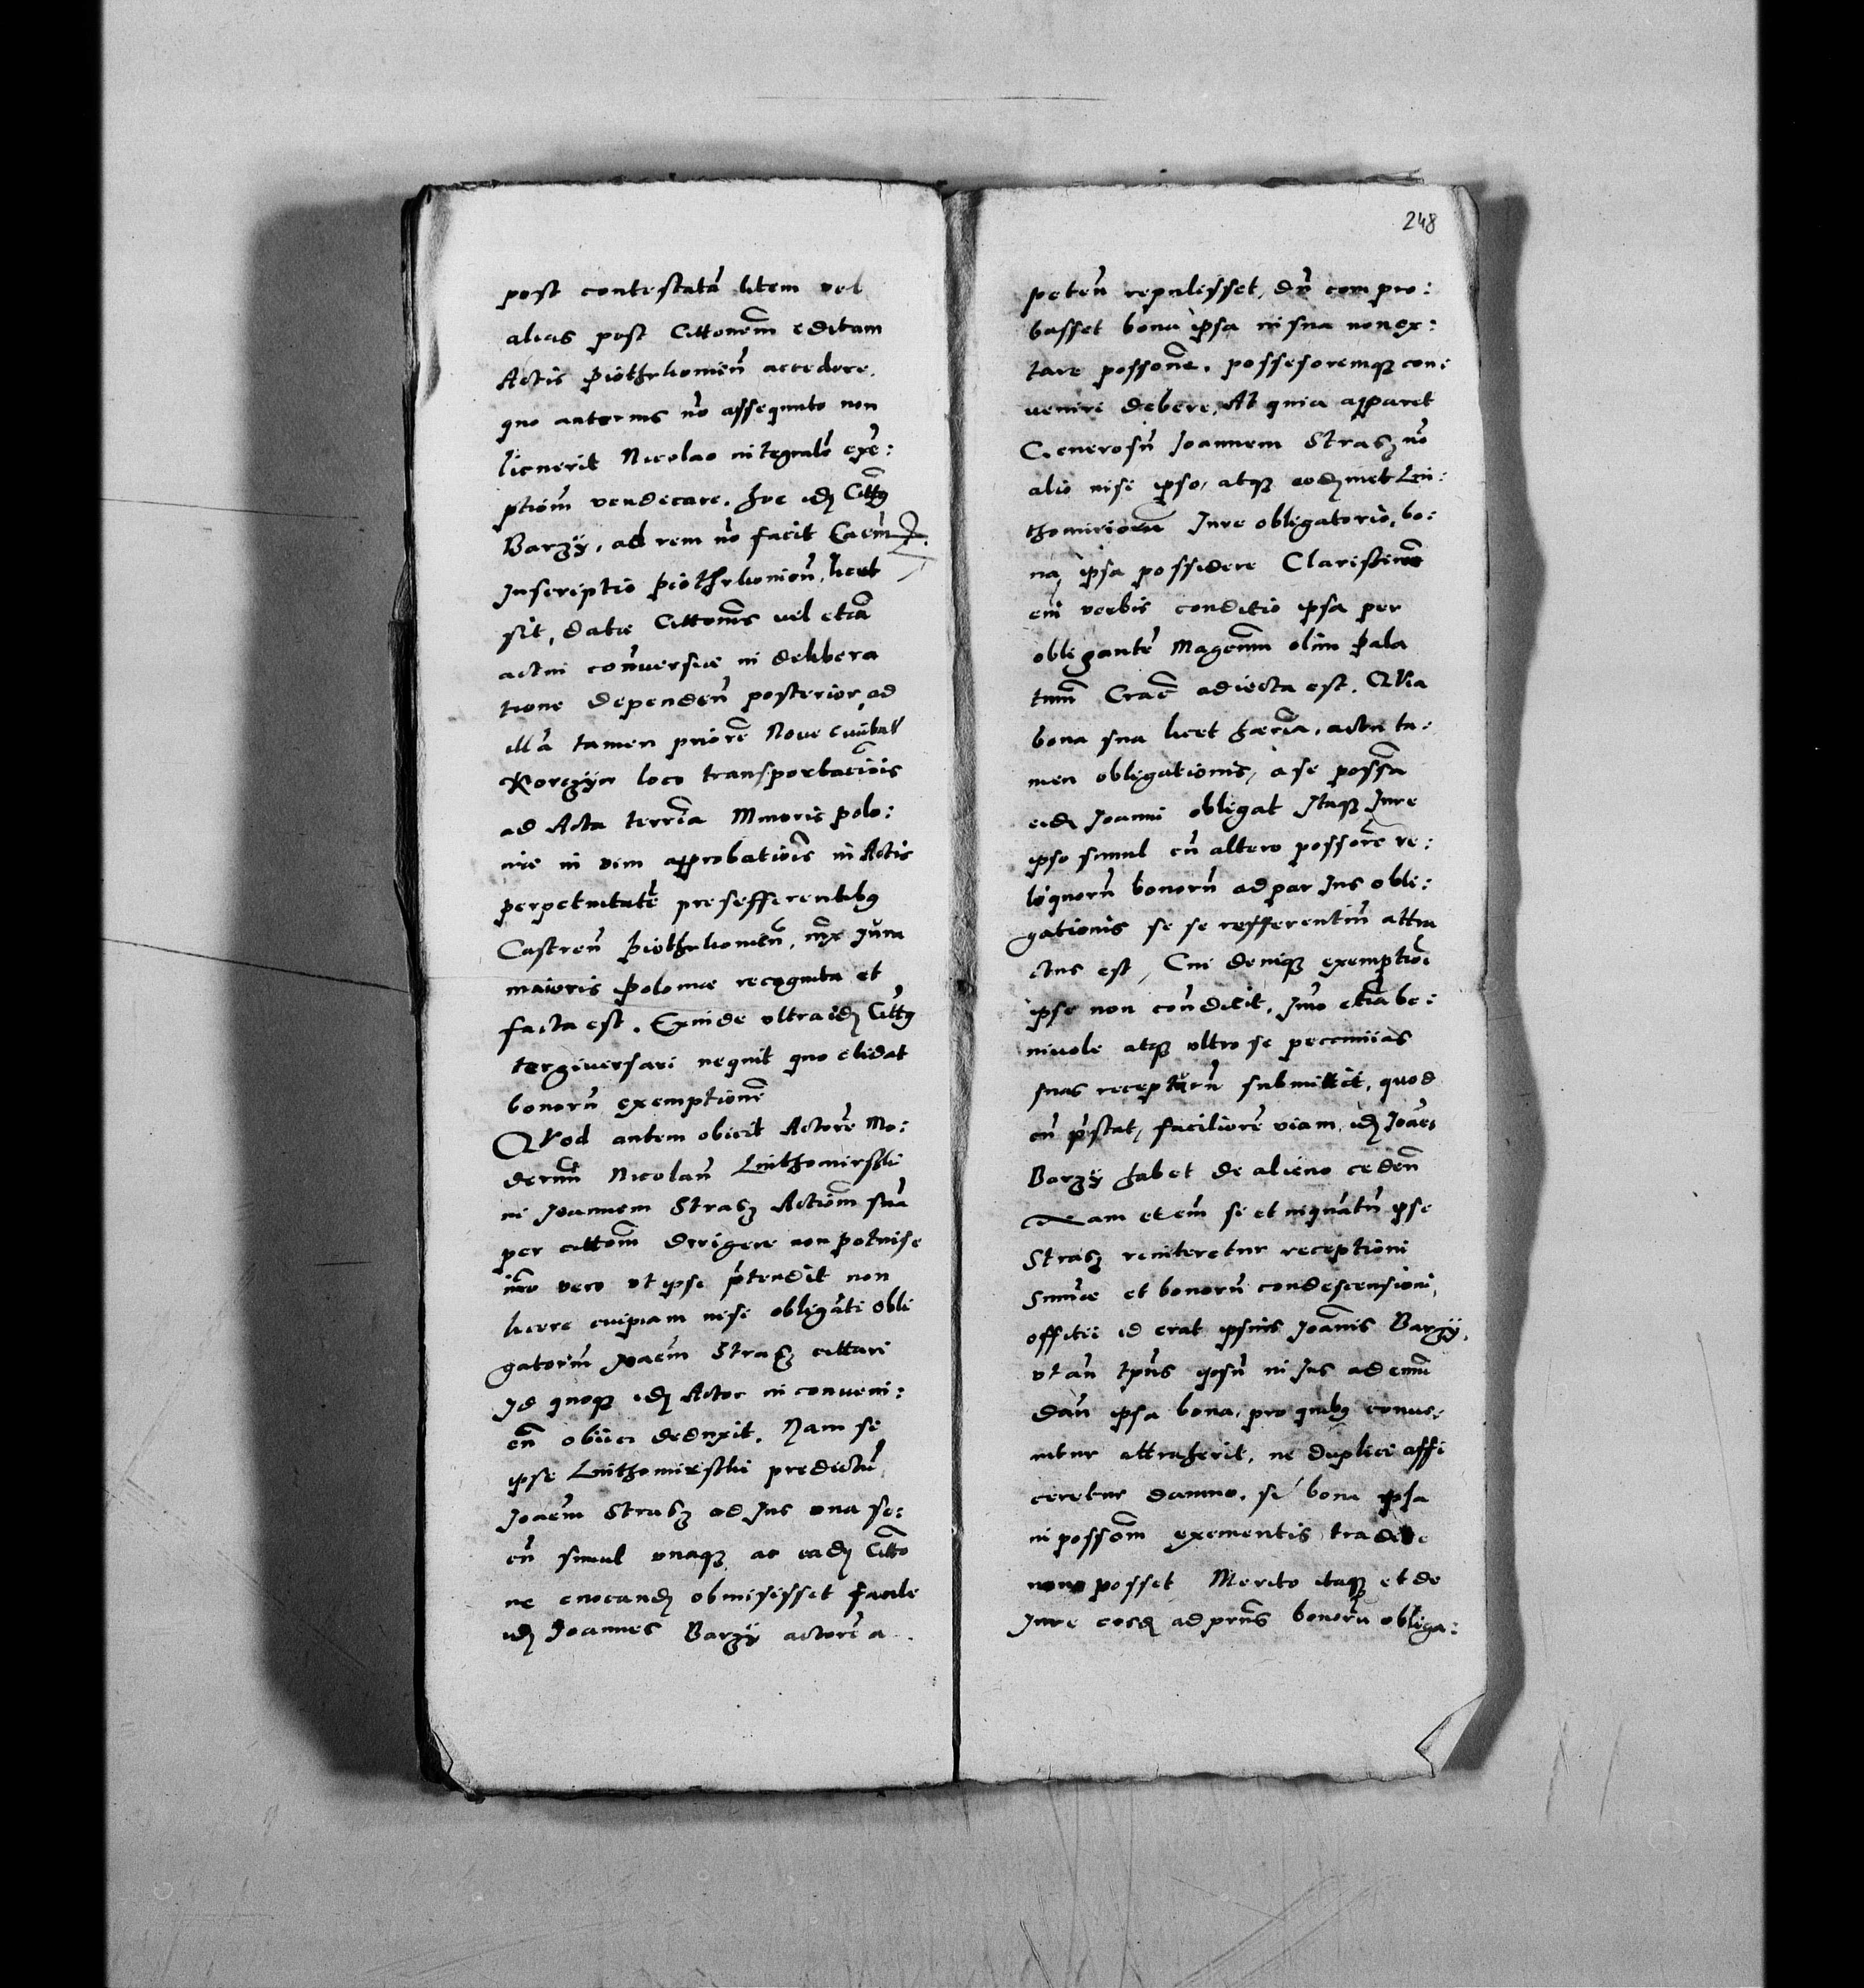 post contestatā litem vel
alias post Cittonem̄ editam
Actis Piothrkomien̄ accedere,
quo anterius nō assequuto non
licuerit Nicolao integralē exē:
ptiōm vendicare. hoc idē Cittꝰ
Barzÿ, ad rem nō facit Eaem̄
Inscriptio Piothrkonien̄, licet
sit, datæ Cittonis vel etiā
actui conversiæ in delibera
tione dependen̄ posterior, ad
illā tamen priorē Nove Civitat̄
Korczÿn loco transportaciōis
ad Acta terrīa Minoris Polo:
niæ in vim approbatiōis in Actis
perpetuitatē presefferentibꝰ
Castren̄ Piothrkomien̄, iux̄ Jura
maioris Poloniæ recognita et
facta est. Exinde ultra idē Cittꝰ
tergiversari nequit quo elidat
bonorū exemptionē
Quod autem obicit Actorē Mo:
dernū Nicolaū Luthomirski
in Joannem Strasz Actiōm suā
per cittom̄ dirigere non potuise
imō vero ut ipse p̄tendit non
licere cuipiam nisi obligāti obli
gatoriū Joaēm Strasz cittari
Id quoqꝫ idē Actor in conveni:
en̄ obiici deduxit. Nam si
ipse Luthomirski predictū
Joaēm Strasz ad Jus una se:
cū simul unaqꝫ ac eadē Citto
ne evocandū obmisisset facile
idē Joannes Barzÿ actorē a
248
peten̄ repulisset, dū compro:
basset bona ipsa in sua non ex:
tare possone, possesoremqꝫ con:
veniri debere, At quia apparet
Generosū Joannem Strasz nō
alio nisi ipso, atqꝫ eodemet Lu:
thomirioru Jure obligatorio, bo:
na ipsa possidere Clarissimo
eni verbis conditio ipsa per
obligantē Magcum olim Pala
tinū Crac̄ adiecta est. Quia
bona sua licet hæria, actu ta:
men obligationis, a se possā
eidē Joanni obligat Itaqꝫ Jure
ipso simul cū altero possorē re:
liquorū bonorū ad par Jus obli:
gationis se se refferentiū attra
ctus est, Cui deniqꝫ exemptiōi
ipse non condicit, Imo etiā be:
nivole atqꝫ ultro se peccuniias
suas recepturū submittit, quod
cū p̄stat, faciliorē viam, idē Joaēs
Barzÿ habet de alieno ceden̄
Nam etem̄ si et inquātū ipse
Strasz reniteretur receptioni
Summæ et bonorū condescensioni,
offitii id erat ipsius Joānis Barzÿ,
ut an̄ tp̄us ipsū in Jus ad emū
dan̄ ipsa bona, pro quibꝰ conve:
nitur attraherit, ne duplici affi
ceretur damno, si bona ipsa
in possōm exementis tradere
non posset Merito itaqꝫ et de
Jure eosdē ad prn̄s bonorū obliga: